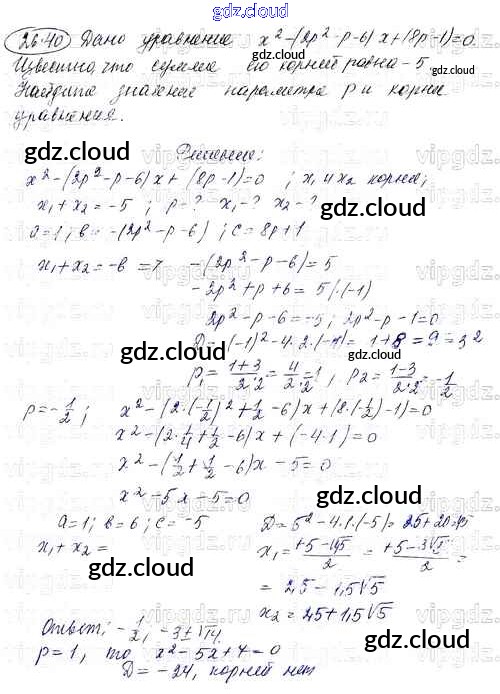 gdz.cloud
26.40 Дано уравнение x²-(2p²-p-6)x+(8p-1)=0
Известно, что сумма его корней равна -5
gdz.cloud
Найдите значение параметра p и корни
уравнения.
gdz.cloud
Решение:
x²-(2p²-p-6)x+(8p-1)=0 ; x₁ и x₂ корни;
x₁+x₂=-5 ; p-? x₁-? x₂-?
gdz.cloud
a=1; b=-(2p²-p-6) ; c=8p+1
x₁+x₂=-b => -(2p²-p-6)=5
-2p²+p+6=5 |·(-1)
2p²-p-6=-5; 2p²-p-1=0
D=(-1)²-4·2·(-1)=1+8=9=3²
gdz.cloud
p₁=(1+3)/(2·2)=4/(2·2)=1, p₂=(1-3)/(2·2)=-1/2
p=-1/2; x²-(2·(-1/2)²+1/2-6)x+(8·(-1/2)-1)=0
x²-(2·1/4+1/2-6)x+(-4·1)=0
x²-(1/2+1/2-6)x-5=0
x²-5x-5=0
gdz.cloud
a=1; b=6; c=-5 D=5²-4·1·(-5)=25+20=45
x₁+x₂= x₁=(+5-√45)/2=(+5-3√5)/2=
gdz.cloud
=2,5-1,5√5
x₂=2,5+1,5√5
Ответ: -1/2, -3±√14.
gdz.cloud
p=1, то x²-5x+7=0
D=-24, корней нет
gdz.cloud